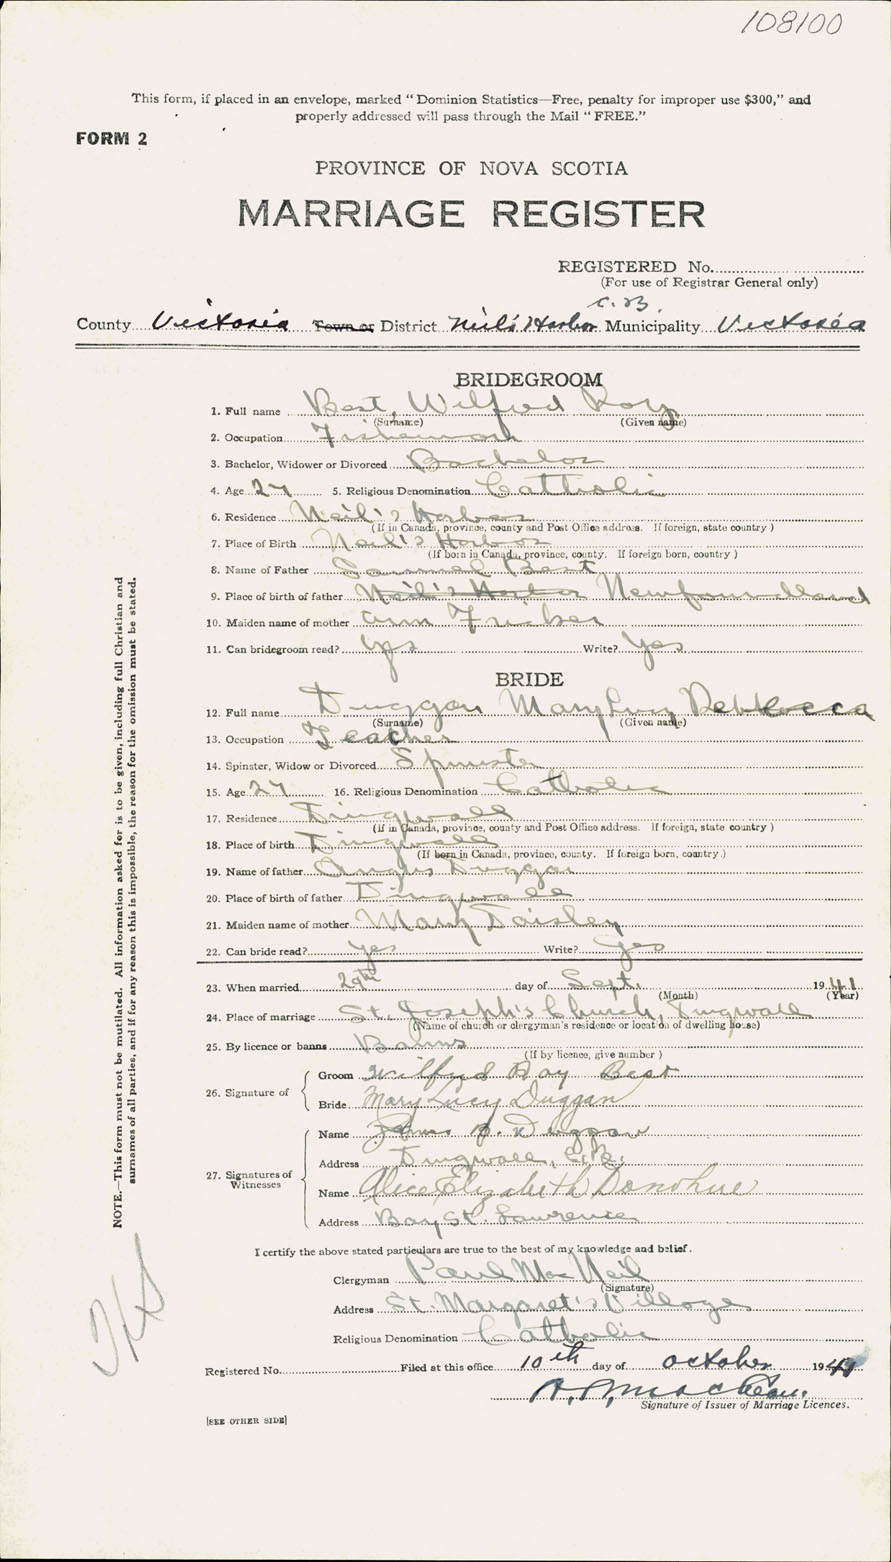 108100
This form, if placed in an envelope, marked “ Dominion Statistics—Free, penalty for improper use $300,” and
properly addressed will pass through the Mail “ FREE.”
FORM 2
PROVINCE OF NOVA SCOTIA
MARRIAGE REGISTER
REGISTERED No.
(For use of Registrar General only)
C. B.
County Victoria Town or District Neil's Harbor Municipality Victoria
BRIDEGROOM
1. Full name Best, Wilfred Roy
(Surname) (Given name)
2. Occupation Fisherman
3. Bachelor, Widower or Divorced Bachelor
4. Age 27 5. Religious Denomination Catholic
6. Residence Neil's Harbor
(If in Canada, province, county and Post Office address. If foreign, state country )
7. Place of Birth Neil's Harbor
(If born in Canada, province, county. If foreign born, country )
8. Name of Father Samuel Best
9. Place of birth of father Neil's Harbor Newfoundland
10. Maiden name of mother Ann Fricker
11. Can bridegroom read? yes Write? Yes
BRIDE
12. Full name Duggan Mary Lucy Rebbecca
(Surname) (Given name)
13. Occupation Teacher
14. Spinster, Widow or Divorced Spinster
15. Age 27 16. Religious Denomination Catholic
17. Residence Dingwall
(If in Canada, province, county and Post Office address. If foreign, state country )
18. Place of birth Dingwall
(If born in Canada, province, county. If foreign born, country.)
19. Name of father Angus Duggan
20. Place of birth of father Dingwall
21. Maiden name of mother Mary Daisley
22. Can bride read? yes Write? yes
23. When married 29th day of Sept. 1941
(Month) (Year)
24. Place of marriage St. Joseph's Church, Dingwall
(Name of church or clergyman's residence or location of dwelling house)
25. By licence or banns Banns
(If by licence, give number )
26. Signature of
Groom Wilfred Roy Best
Bride Mary Lucy Duggan
27. Signatures of Witnesses
Name James Duggan
Address Dingwall, C.B.
Name Alice Elizabeth Donohue
Address Bay St. Lawrence
I certify the above stated particulars are true to the best of my knowledge and belief.
Clergyman Paul MacNeil
(Signature)
Address St. Margaret's Village
Religious Denomination Catholic
Registered No. Filed at this office 10th day of October 1941
Signature of Issuer of Marriage Licences.
[SEE OTHER SIDE]
NOTE.—This form must not be mutilated. All information asked for is to be given, including full Christian and
surnames of all parties, and if for any reason this is impossible, the reason for the omission must be stated.